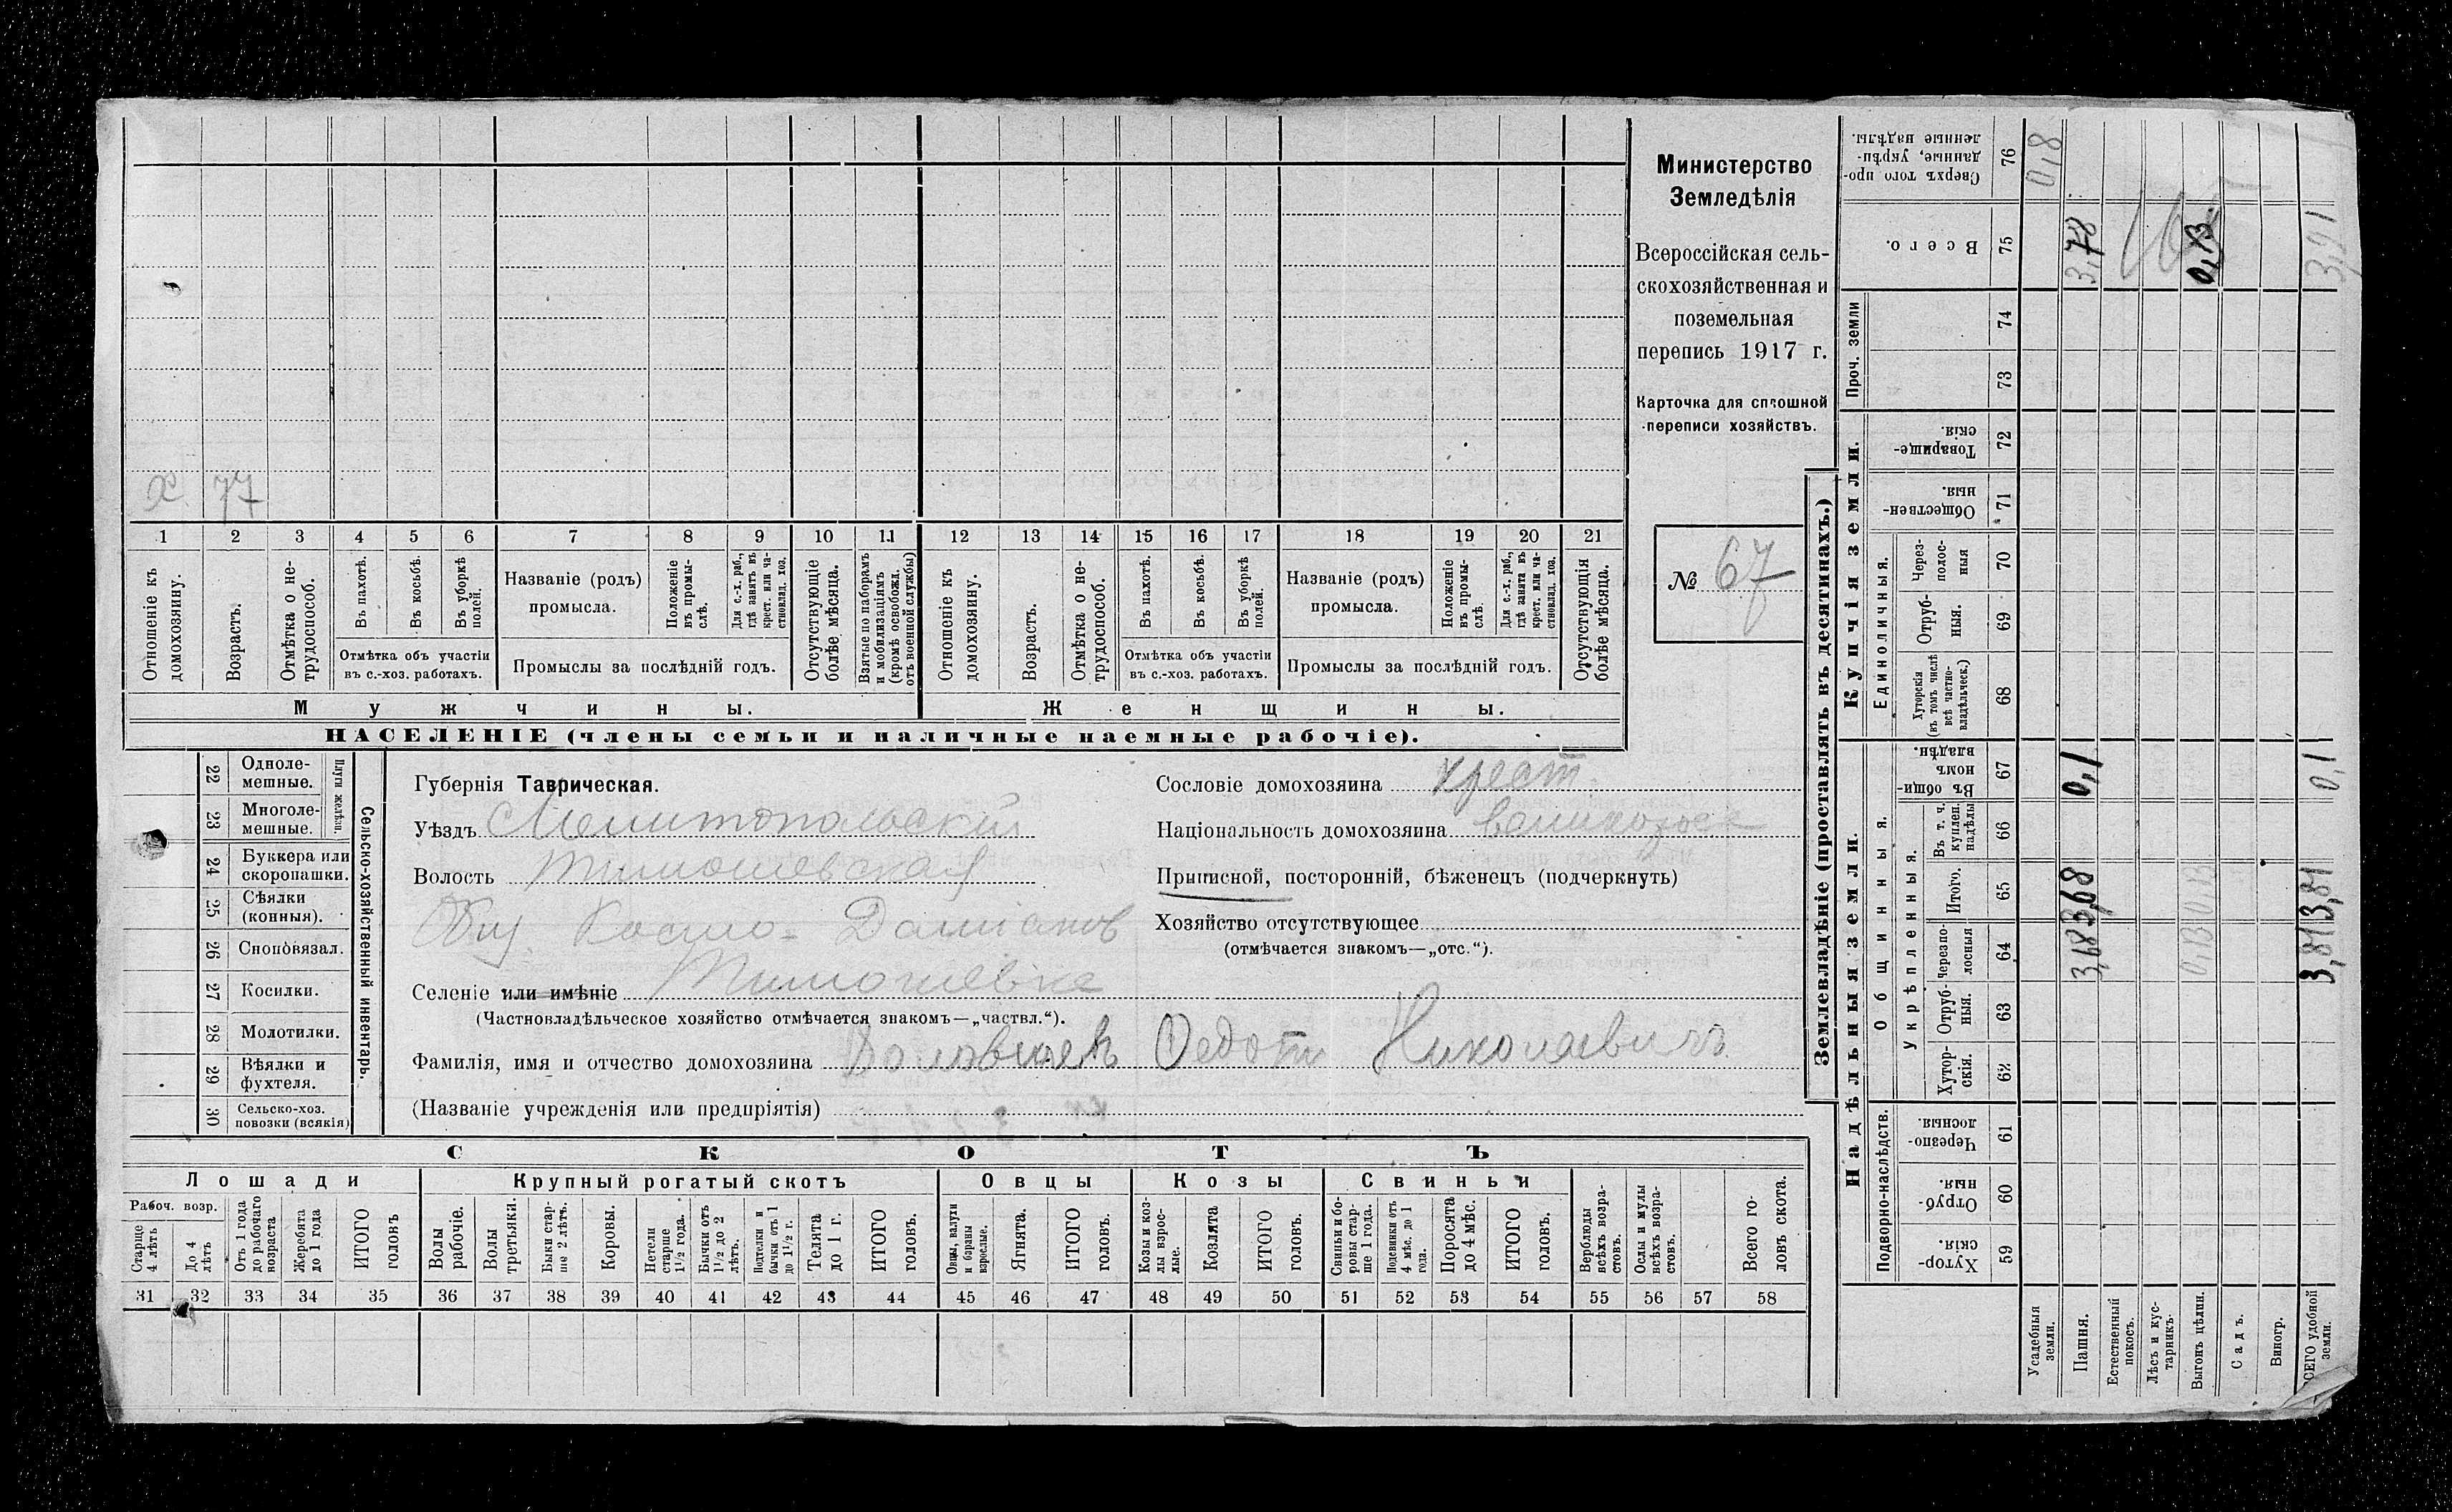 Министерство
Земледѣлія
Всероссійская сель-
скохозяйственная и
поземельная
перепись 1917 г.
Карточка для сплошной
переписи хозяйствъ.
№ 67
Х 77
1 2 3 4 5 6 7 8 9 10 11 12 13 14 15 16 17 18 19 20 21
Отношеніе къ домохозяину.
Возрастъ.
Отмѣтка о не-трудоспособ.
Въ пахотѣ.
Въ косьбѣ.
Въ уборкѣ полей.
Названіе (родъ) промысла.
Положеніе въ промы-слѣ.
Для с.-х. раб., гдѣ занятъ въ крест. или ча-стновлад. хоз.
Отсутствующіе болѣе мѣсяца.
Взятые по наборамъ и мобилизаціямъ (кромѣ освобожд. отъ военной службы)
Отношеніе къ домохозяину.
Возрастъ.
Отмѣтка о не-трудоспособ.
Въ пахотѣ.
Въ косьбѣ.
Въ уборкѣ полей.
Названіе (родъ) промысла.
Положеніе въ промы-слѣ.
Для с.-х. раб., гдѣ занята въ крест. или ча-стновлад. хоз.
Отсутствующія болѣе мѣсяца.
Отмѣтка объ участіи въ с.-хоз. работахъ.
Промыслы за послѣдній годъ.
Отмѣтка объ участіи въ с.-хоз. работахъ.
Промыслы за послѣдній годъ.
Мужчины.
Женщины.
НАСЕЛЕНІЕ (члены семьи и наличные наемные рабочіе).
Сельско-хозяйственный инвентарь.
Плуги желѣзн.
22 Одноле-мешные.
23 Многоле-мешные.
24 Буккера или скоропашки.
25 Сѣялки (конныя).
26 Сноповязал.
27 Косилки.
28 Молотилки.
29 Вѣялки и фухтеля.
30 Сельско-хоз. повозки (всякія)
Губернія Таврическая.
Уѣздъ Мелитопольскій
Волость Тимошевская
Общ. Космо-Даміанов
Селеніе или имѣніе Тимошевка
(Частновладѣльческое хозяйство отмѣчается знакомъ—„частвл.“).
Фамилія, имя и отчество домохозяина Федотъ Николаевичъ
(Названіе учрежденія или предпріятія)
Сословіе домохозяина крест.
Національность домохозяина великоросс
Приписной, посторонній, бѣженецъ (подчеркнуть)
Хозяйство отсутствующее
(отмѣчается знакомъ—„отс.“).
СКОТЪ
Лошади
Крупный рогатый скотъ
Овцы
Козы
Свиньи
Рабоч. возр.
Старше 4 лѣтъ
До 4 лѣтъ
Отъ 1 года до рабочаго возраста
Жеребята до 1 года
ИТОГО головъ
Волы рабочіе.
Волы третьяки.
Быки стар-ше 2 лѣтъ.
Коровы.
Нетели старше 1½ года.
Бычки отъ 1½ до 2 лѣтъ.
Подтелки и бычки отъ 1 до 1½ г.
Телята до 1 г.
ИТОГО головъ.
Овцы, валухи и бараны взрослые.
Ягнята.
ИТОГО головъ.
Козы и коз-лы взрос-лые.
Козлята
ИТОГО головъ.
Свиньи и бо-ровы стар-ше 1 года.
Подсвинки отъ 4 мѣс. до 1 года.
Поросята до 4 мѣс.
ИТОГО головъ.
Верблюды всѣхъ возра-стовъ.
Ослы и мулы всѣхъ возра-стовъ.
Всего го-ловъ скота.
31 32 33 34 35 36 37 38 39 40 41 42 43 44 45 46 47 48 49 50 51 52 53 54 55 56 57 58
Землевладѣніе (проставлять въ десятинахъ.)
Надѣльныя земли.
Купчія земли.
Проч. земли
Подворно-наслѣдств.
Общинныя.
Укрѣпленныя.
Единоличныя.
Хутор-скія. 59
Отруб-ныя. 60
Черезпо-лосныя 61
Хутор-скія. 62
Отруб-ныя. 63
Черезпо-лосныя 64
Итого. 65
Въ т. ч. куплен. надѣлы 66
Въ общи-номъ владѣн. 67
Хуторскія (въ томъ числѣ всѣ частно-владѣльческ.) 68
Отруб-ныя. 69
Через-полос-ныя 70
Обществен-ныя. 71
Товарище-скія 72
73
74
Всего. 75
Сверхъ того про-данные, укрѣп-ленные надѣлы. 76
Усадебныя земли. 0,8
Пашня. 3,68 3,68 0,1 3,78
Естественный покосъ.
Лѣсъ и кус-тарникъ.
Выгонъ цѣлин. 0,13 0,13 0,13
Садъ.
Виногр.
ВСЕГО удобной земли. 3,81 3,81 0,1 3,91